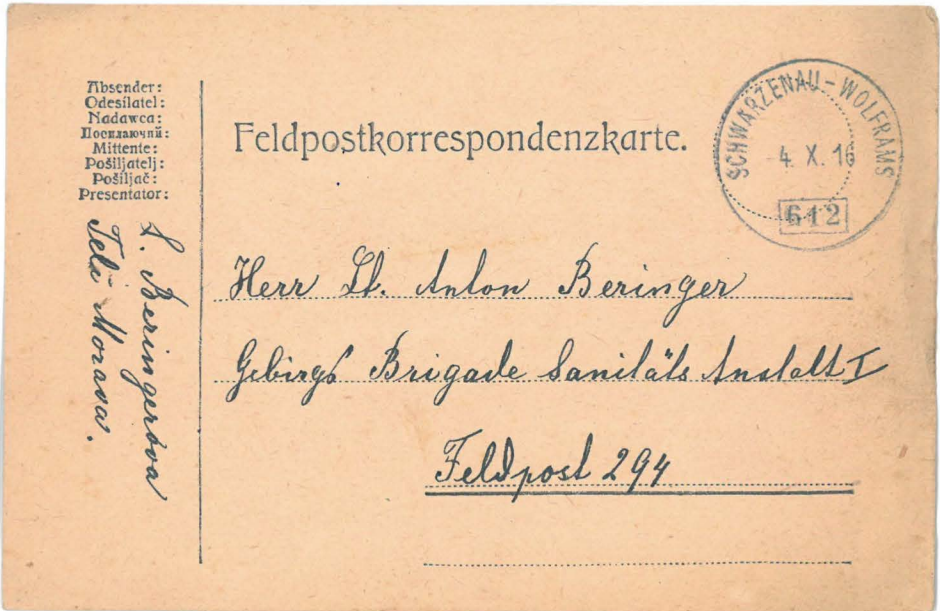 Absender:
Odesílatel:
Nadawca:
Посилаючий:
Mittente:
Pošiljatelj:
Pošiljač:
Presentator:
L. Beringerova
Telč Morava.
Feldpostkorrespondenzkarte.
SCHWARZENAU - WOLFRAMS
4. X. 16
612
Herr Lt. Anton Beringer
Gebirgs Brigade Sanitäts Anstalt I
Feldpost 294